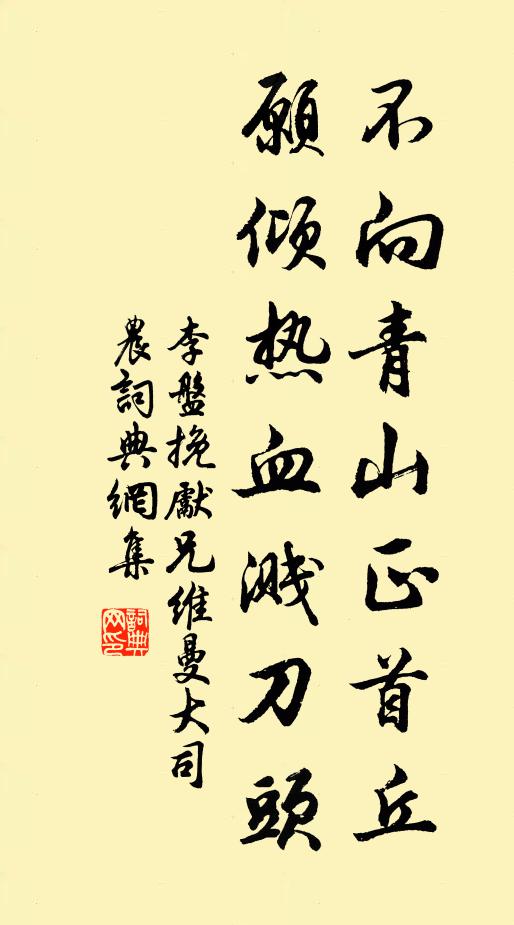 不向青山正首丘
願傾热血溅刀頭
李盤挽獻兄維曼大司
農詞典網集
詞典網印